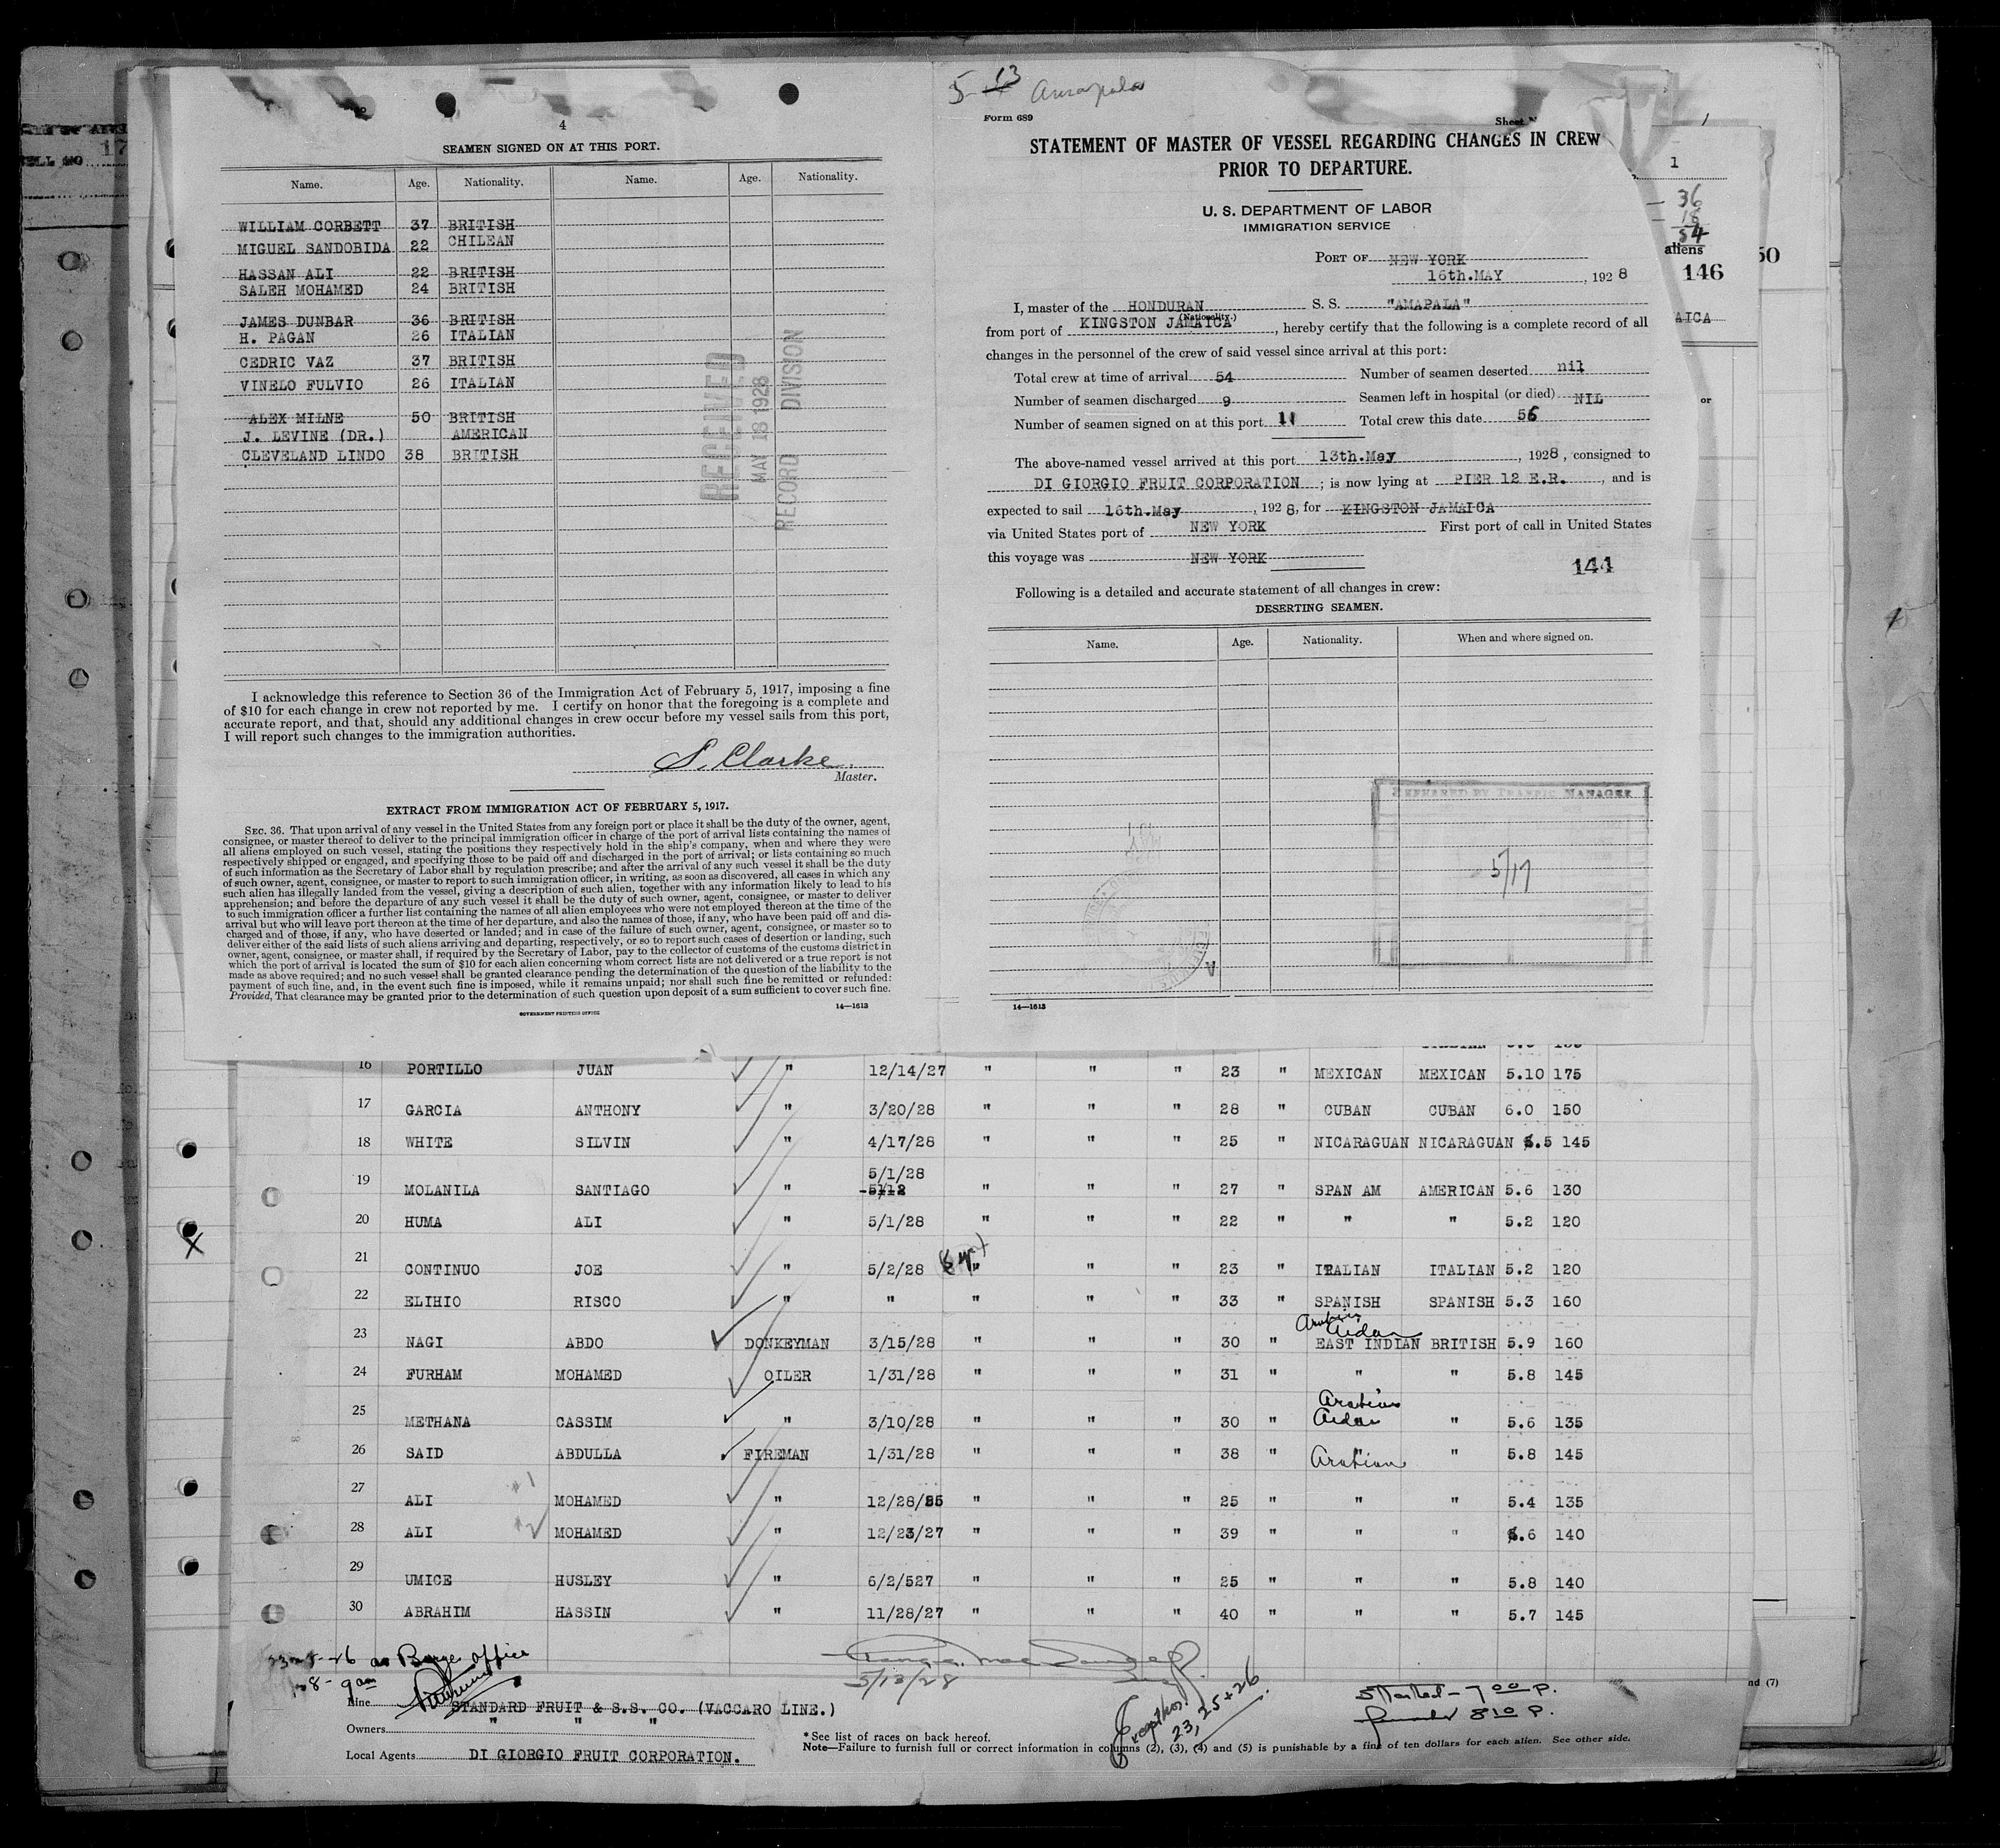 4
SEAMEN SIGNED ON AT THIS PORT.
Name. Age. Nationality. Name. Age. Nationality.
WILLIAM CORBETT 37 BRITISH
MIGUEL SANDOBIDA 22 CHILEAN
HASSAN ALI 22 BRITISH
SALEH MOHAMED 24 BRITISH
JAMES DUNBAR 36 BRITISH
H. PAGAN 26 ITALIAN
CEDRIC VAZ 37 BRITISH
VINELO FULVIO 26 ITALIAN
ALEX MILNE 50 BRITISH
J. LEVINE (DR.) AMERICAN
CLEVELAND LINDO 38 BRITISH
RECEIVED
MAY 18 1928
RECORD DIVISION
I acknowledge this reference to Section 36 of the Immigration Act of February 5, 1917, imposing a fine
of $10 for each change in crew not reported by me. I certify on honor that the foregoing is a complete and
accurate report, and that, should any additional changes in crew occur before my vessel sails from this port,
I will report such changes to the immigration authorities.
S. Clarke
Master.
EXTRACT FROM IMMIGRATION ACT OF FEBRUARY 5, 1917.
SEC. 36. That upon arrival of any vessel in the United States from any foreign port or place it shall be the duty of the owner, agent,
consignee, or master thereof to deliver to the principal immigration officer in charge of the port of arrival lists containing the names of
all aliens employed on such vessel, stating the positions they respectively hold in the ship's company, when and where they were
respectively shipped or engaged, and specifying those to be paid off and discharged in the port of arrival; or lists containing so much
of such information as the Secretary of Labor shall by regulation prescribe; and after the arrival of any such vessel it shall be the duty
of such owner, agent, consignee, or master to report to such immigration officer, in writing, as soon as discovered, all cases in which any
such alien has illegally landed from the vessel, giving a description of such alien, together with any information likely to lead to his
apprehension; and before the departure of any such vessel it shall be the duty of such owner, agent, consignee, or master to deliver
to such immigration officer a further list containing the names of all alien employees who were not employed thereon at the time of the
arrival but who will leave port thereon at the time of her departure, and also the names of those, if any, who have been paid off and dis-
charged and of those, if any, who have deserted or landed; and in case of the failure of such owner, agent, consignee, or master so to
deliver either of the said lists of such aliens arriving and departing, respectively, or so to report such cases of desertion or landing, such
owner, agent, consignee, or master shall, if required by the Secretary of Labor, pay to the collector of customs of the customs district in
which the port of arrival is located the sum of $10 for each alien concerning whom correct lists are not delivered or a true report is not
made as above required; and no such vessel shall be granted clearance pending the determination of the question of the liability to the
payment of such fine, and, in the event such fine is imposed, while it remains unpaid; nor shall such fine be remitted or refunded:
Provided, That clearance may be granted prior to the determination of such question upon deposit of a sum sufficient to cover such fine.
GOVERNMENT PRINTING OFFICE 14—1613
5-13 Amapala
Form 689
Sheet
STATEMENT OF MASTER OF VESSEL REGARDING CHANGES IN CREW
PRIOR TO DEPARTURE.
U. S. DEPARTMENT OF LABOR
IMMIGRATION SERVICE
PORT OF NEW YORK
16th.MAY, 1928
I, master of the HONDURAN S. S. "AMAPALA"
(Nationality.)
from port of KINGSTON JAMAICA, hereby certify that the following is a complete record of all
changes in the personnel of the crew of said vessel since arrival at this port:
Total crew at time of arrival 54 Number of seamen deserted nil
Number of seamen discharged 9 Seamen left in hospital (or died) NIL
Number of seamen signed on at this port 11 Total crew this date 56
The above-named vessel arrived at this port 13th.May, 1928, consigned to
DI GIORGIO FRUIT CORPORATION; is now lying at PIER 12 E.R., and is
expected to sail 16th.May, 1928, for KINGSTON JAMAICA
via United States port of NEW YORK First port of call in United States
this voyage was NEW YORK
144
Following is a detailed and accurate statement of all changes in crew:
DESERTING SEAMEN.
Name. Age. Nationality. When and where signed on.
PREPARED BY TRAFFIC MANAGER
5/17
14—1613
17
1
36
18
54
aliens
146
50
AICA
or
16 PORTILLO JUAN " 12/14/27 " " " 23 " MEXICAN MEXICAN 5.10 175
17 GARCIA ANTHONY " 3/20/28 " " " 28 " CUBAN CUBAN 6.0 150
18 WHITE SILVIN " 4/17/28 " " " 25 " NICARAGUAN NICARAGUAN 5.5 145
5/1/28
19 MOLANILA SANTIAGO " " " " 27 " SPAN AM AMERICAN 5.6 130
20 HUMA ALI " 5/1/28 " " " 22 " " " 5.2 120
21 CONTINUO JOE " 5/2/28 " " " 23 " ITALIAN ITALIAN 5.2 120
22 ELIHIO RISCO " " " " " 33 " SPANISH SPANISH 5.3 160
Arabian
Aidan
23 NAGI ABDO DONKEYMAN 3/15/28 " " " 30 " EAST INDIAN BRITISH 5.9 160
24 FURHAM MOHAMED OILER 1/31/28 " " " 31 " " " 5.8 145
Arabian
25 METHANA CASSIM " 3/10/28 " " " 30 " Aidan " 5.6 135
26 SAID ABDULLA FIREMAN 1/31/28 " " " 38 " Arabian " 5.8 145
27 ALI #1 MOHAMED " 12/28/25 " " " 25 " " " 5.4 135
28 ALI #2 MOHAMED " 12/23/27 " " " 39 " " " 5.6 140
29 UMICE HUSLEY " 6/2/527 " " " 25 " " " 5.8 140
30 ABRAHIM HASSIN " 11/28/27 " " " 40 " " " 5.7 145
Barge Office
9 am
5/13/28
Exception
23, 25 + 26
Started - 7 00 p.
8 10 P.
nd (7)
Line STANDARD FRUIT & S.S. CO. (VACCARO LINE.)
Owners " " "
Local Agents DI GIORGIO FRUIT CORPORATION.
*See list of races on back hereof.
Note—Failure to furnish full or correct information in columns (2), (3), (4) and (5) is punishable by a fine of ten dollars for each alien. See other side.